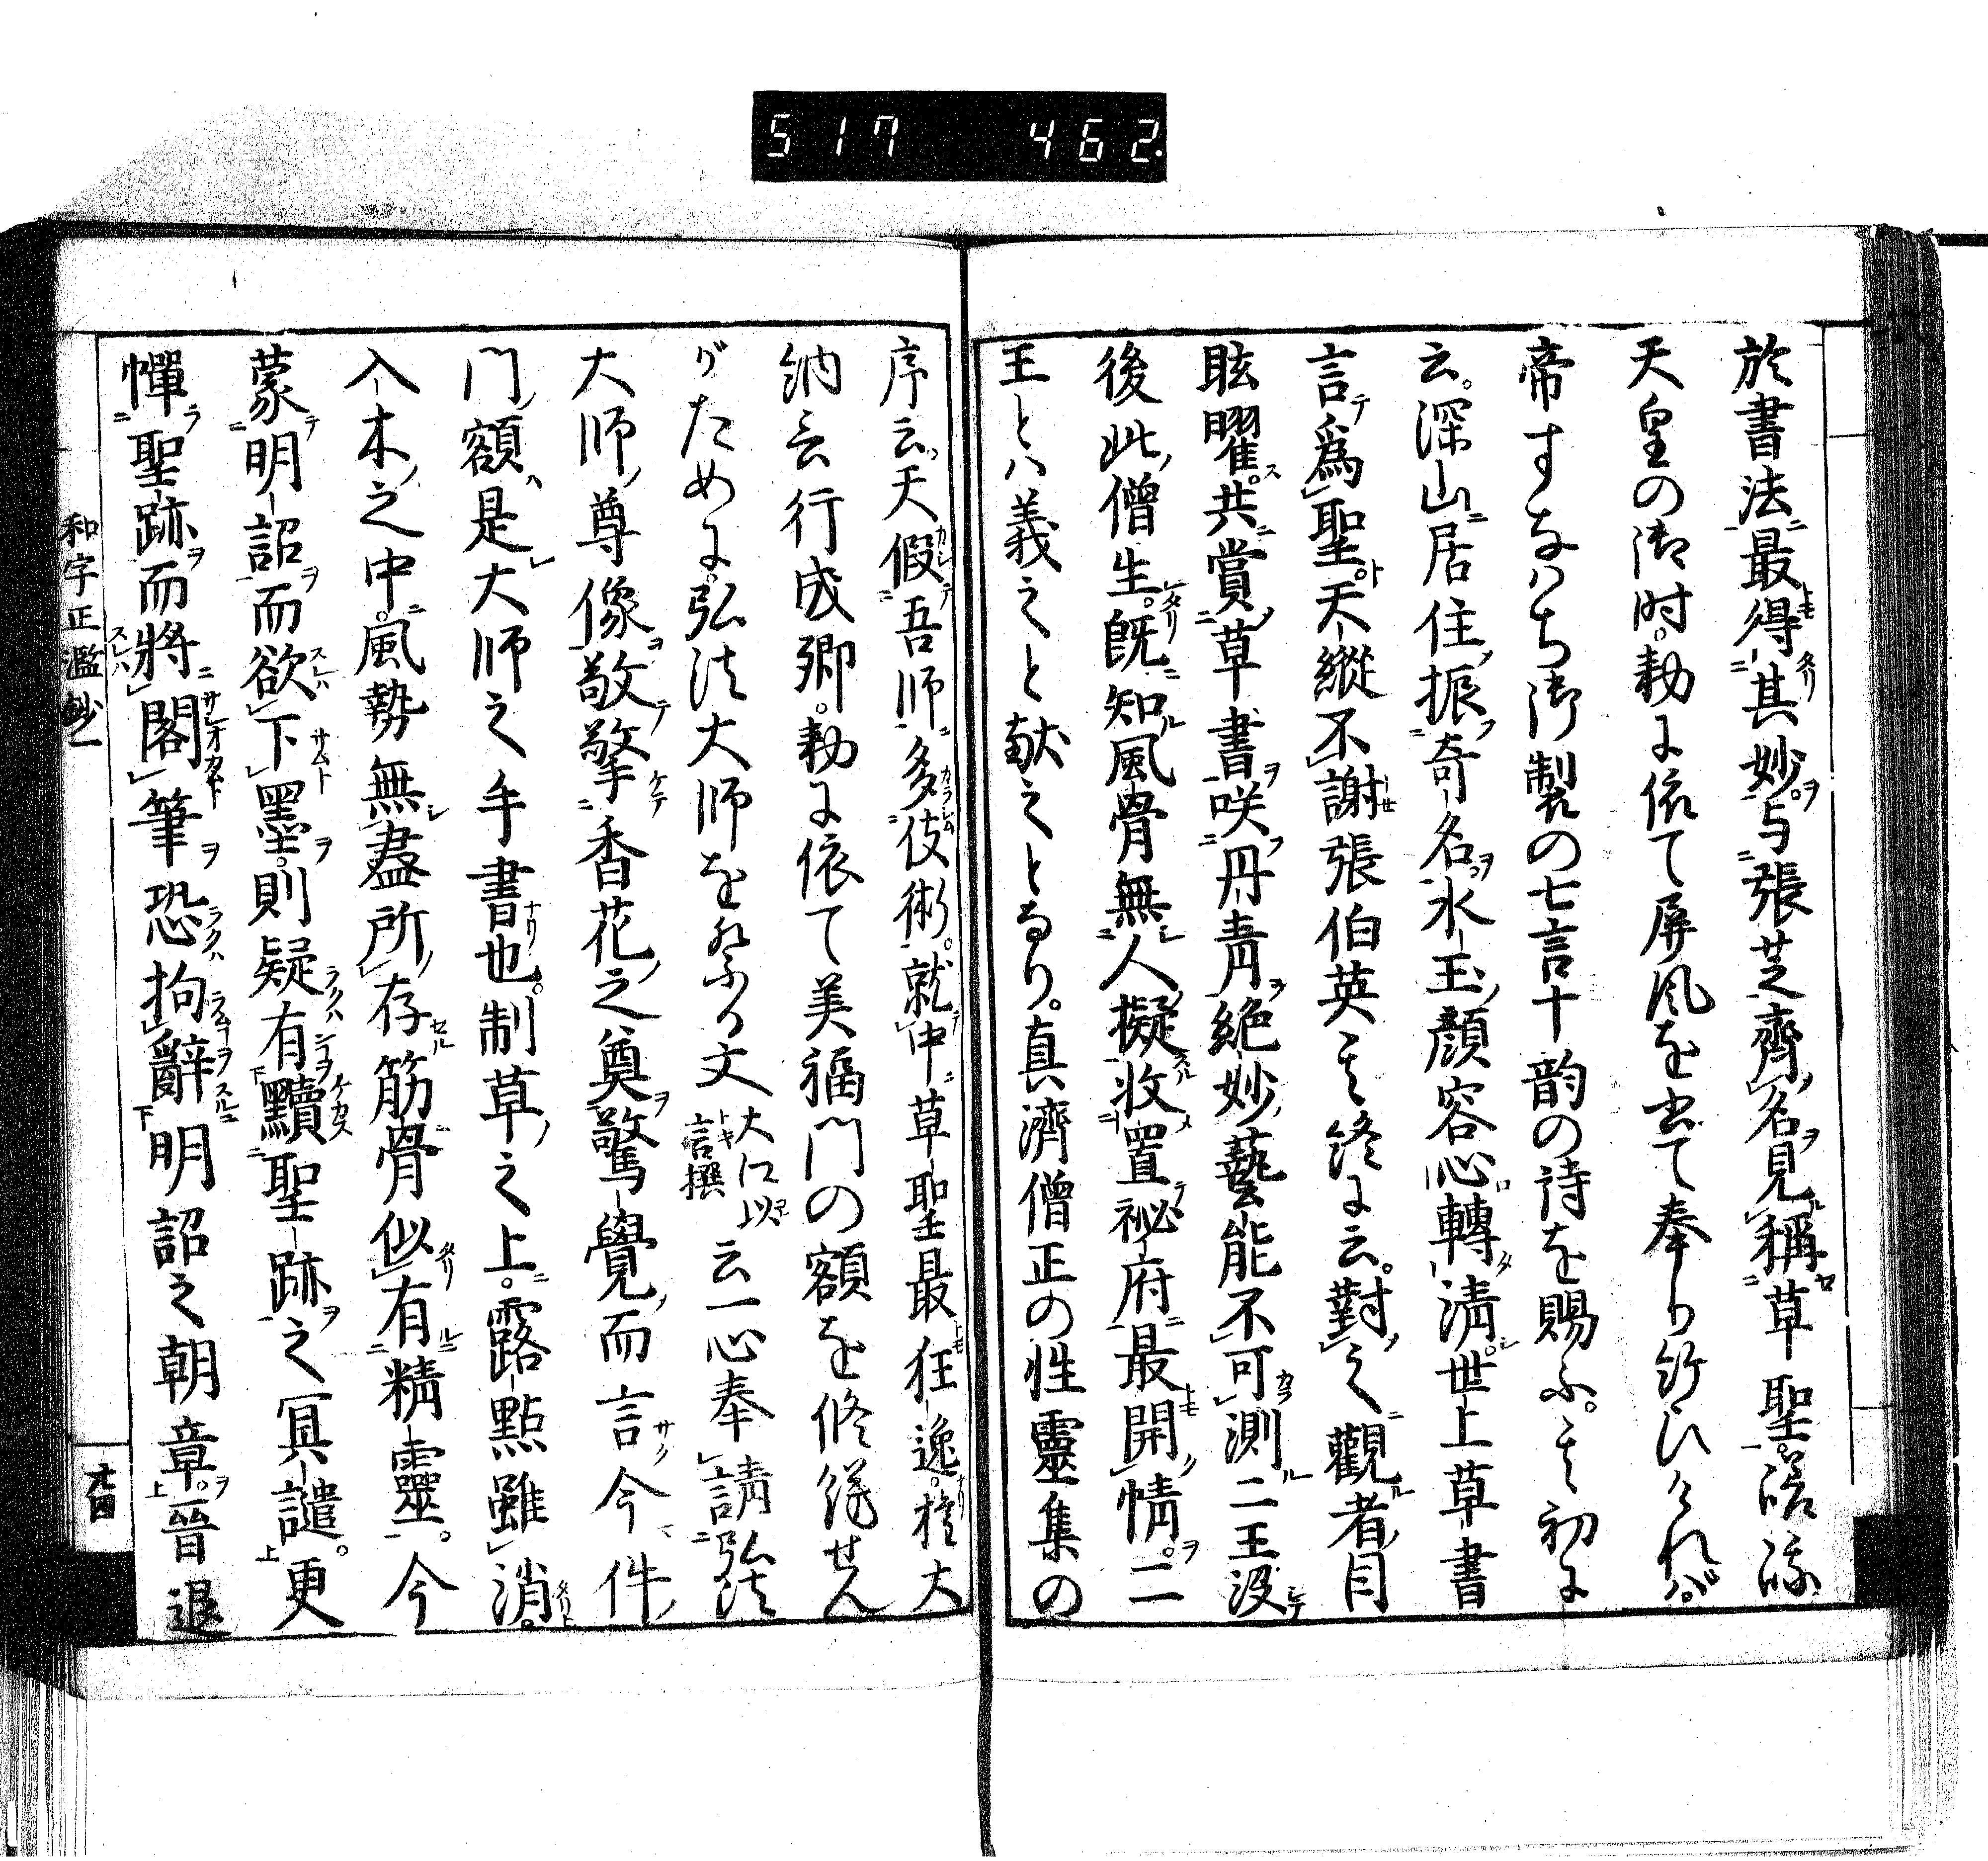 517 462
於書法最得其妙。与張芝齊名見稱草聖。
天皇の御时。勅に依て屏風を書て奉り給ひければ。
帝すなはち御製の七言十韵の詩を賜ふ。其初に
云。深山居住振奇名。氷玉顔容心轉淸。世上草書
言爲聖。天縱不謝張伯英。其終に云。對之觀者目
眩曜。共賞草書咲丹青。絶妙藝能不可測二王没
後此僧生。旣知風骨無人擬收置祕府最開情。二
王とハ義之と献之となり。真濟僧正の性靈集の
序云。天假吾師多伎術。就中草聖最狂逸。権大
納言行成卿。勅に依て美福門の額を修餝せん
がために。弘法大師を祭る文 大江以言撰 云一心奉請弘法
大師尊像敬擎香花之奠驚覺而言今件
門額是大師之手書也。制草之上。露點雖消。
入木之中。風勢無盡所存筋骨似有精靈。今
蒙明詔而欲下墨。則疑有黷聖跡之冥譴。更
憚聖跡而將閣筆恐拘辭明詔之朝章。晉退
和字正濫鈔一
十四